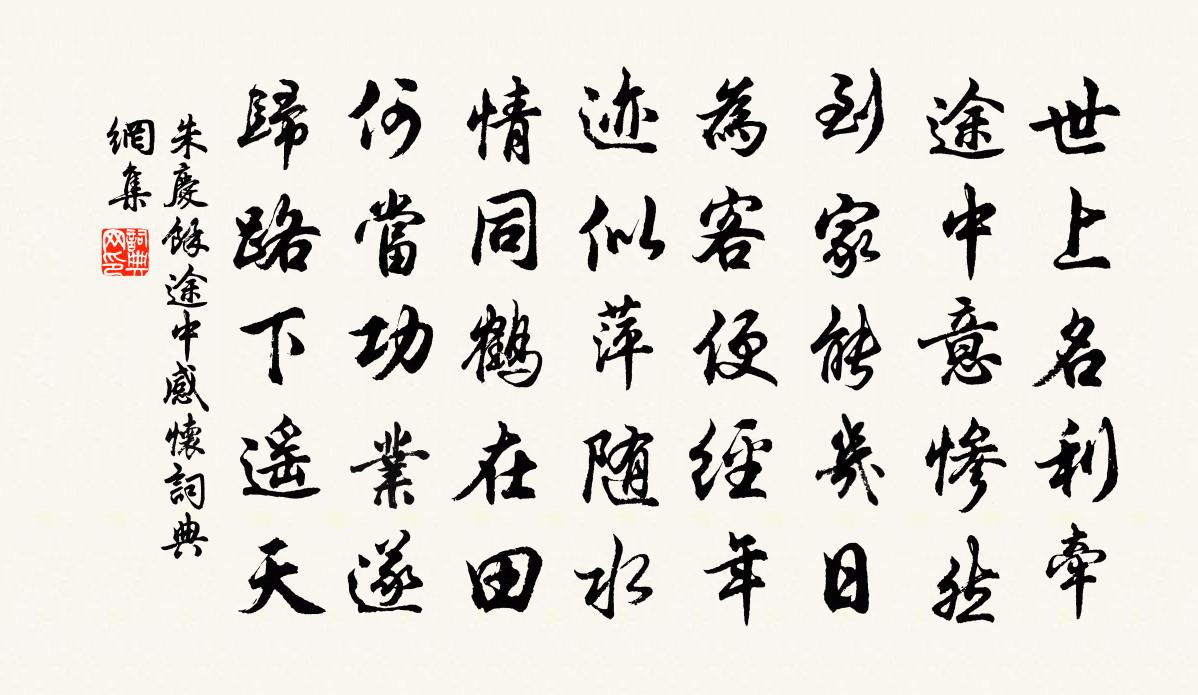 世上名利牽
途中意慘然
到家能幾日
為客便經年
迹似萍随水
情同鶴在田
何當功業遂
歸路下遙天
朱慶餘途中感懷詞典
網集
詞典
网印